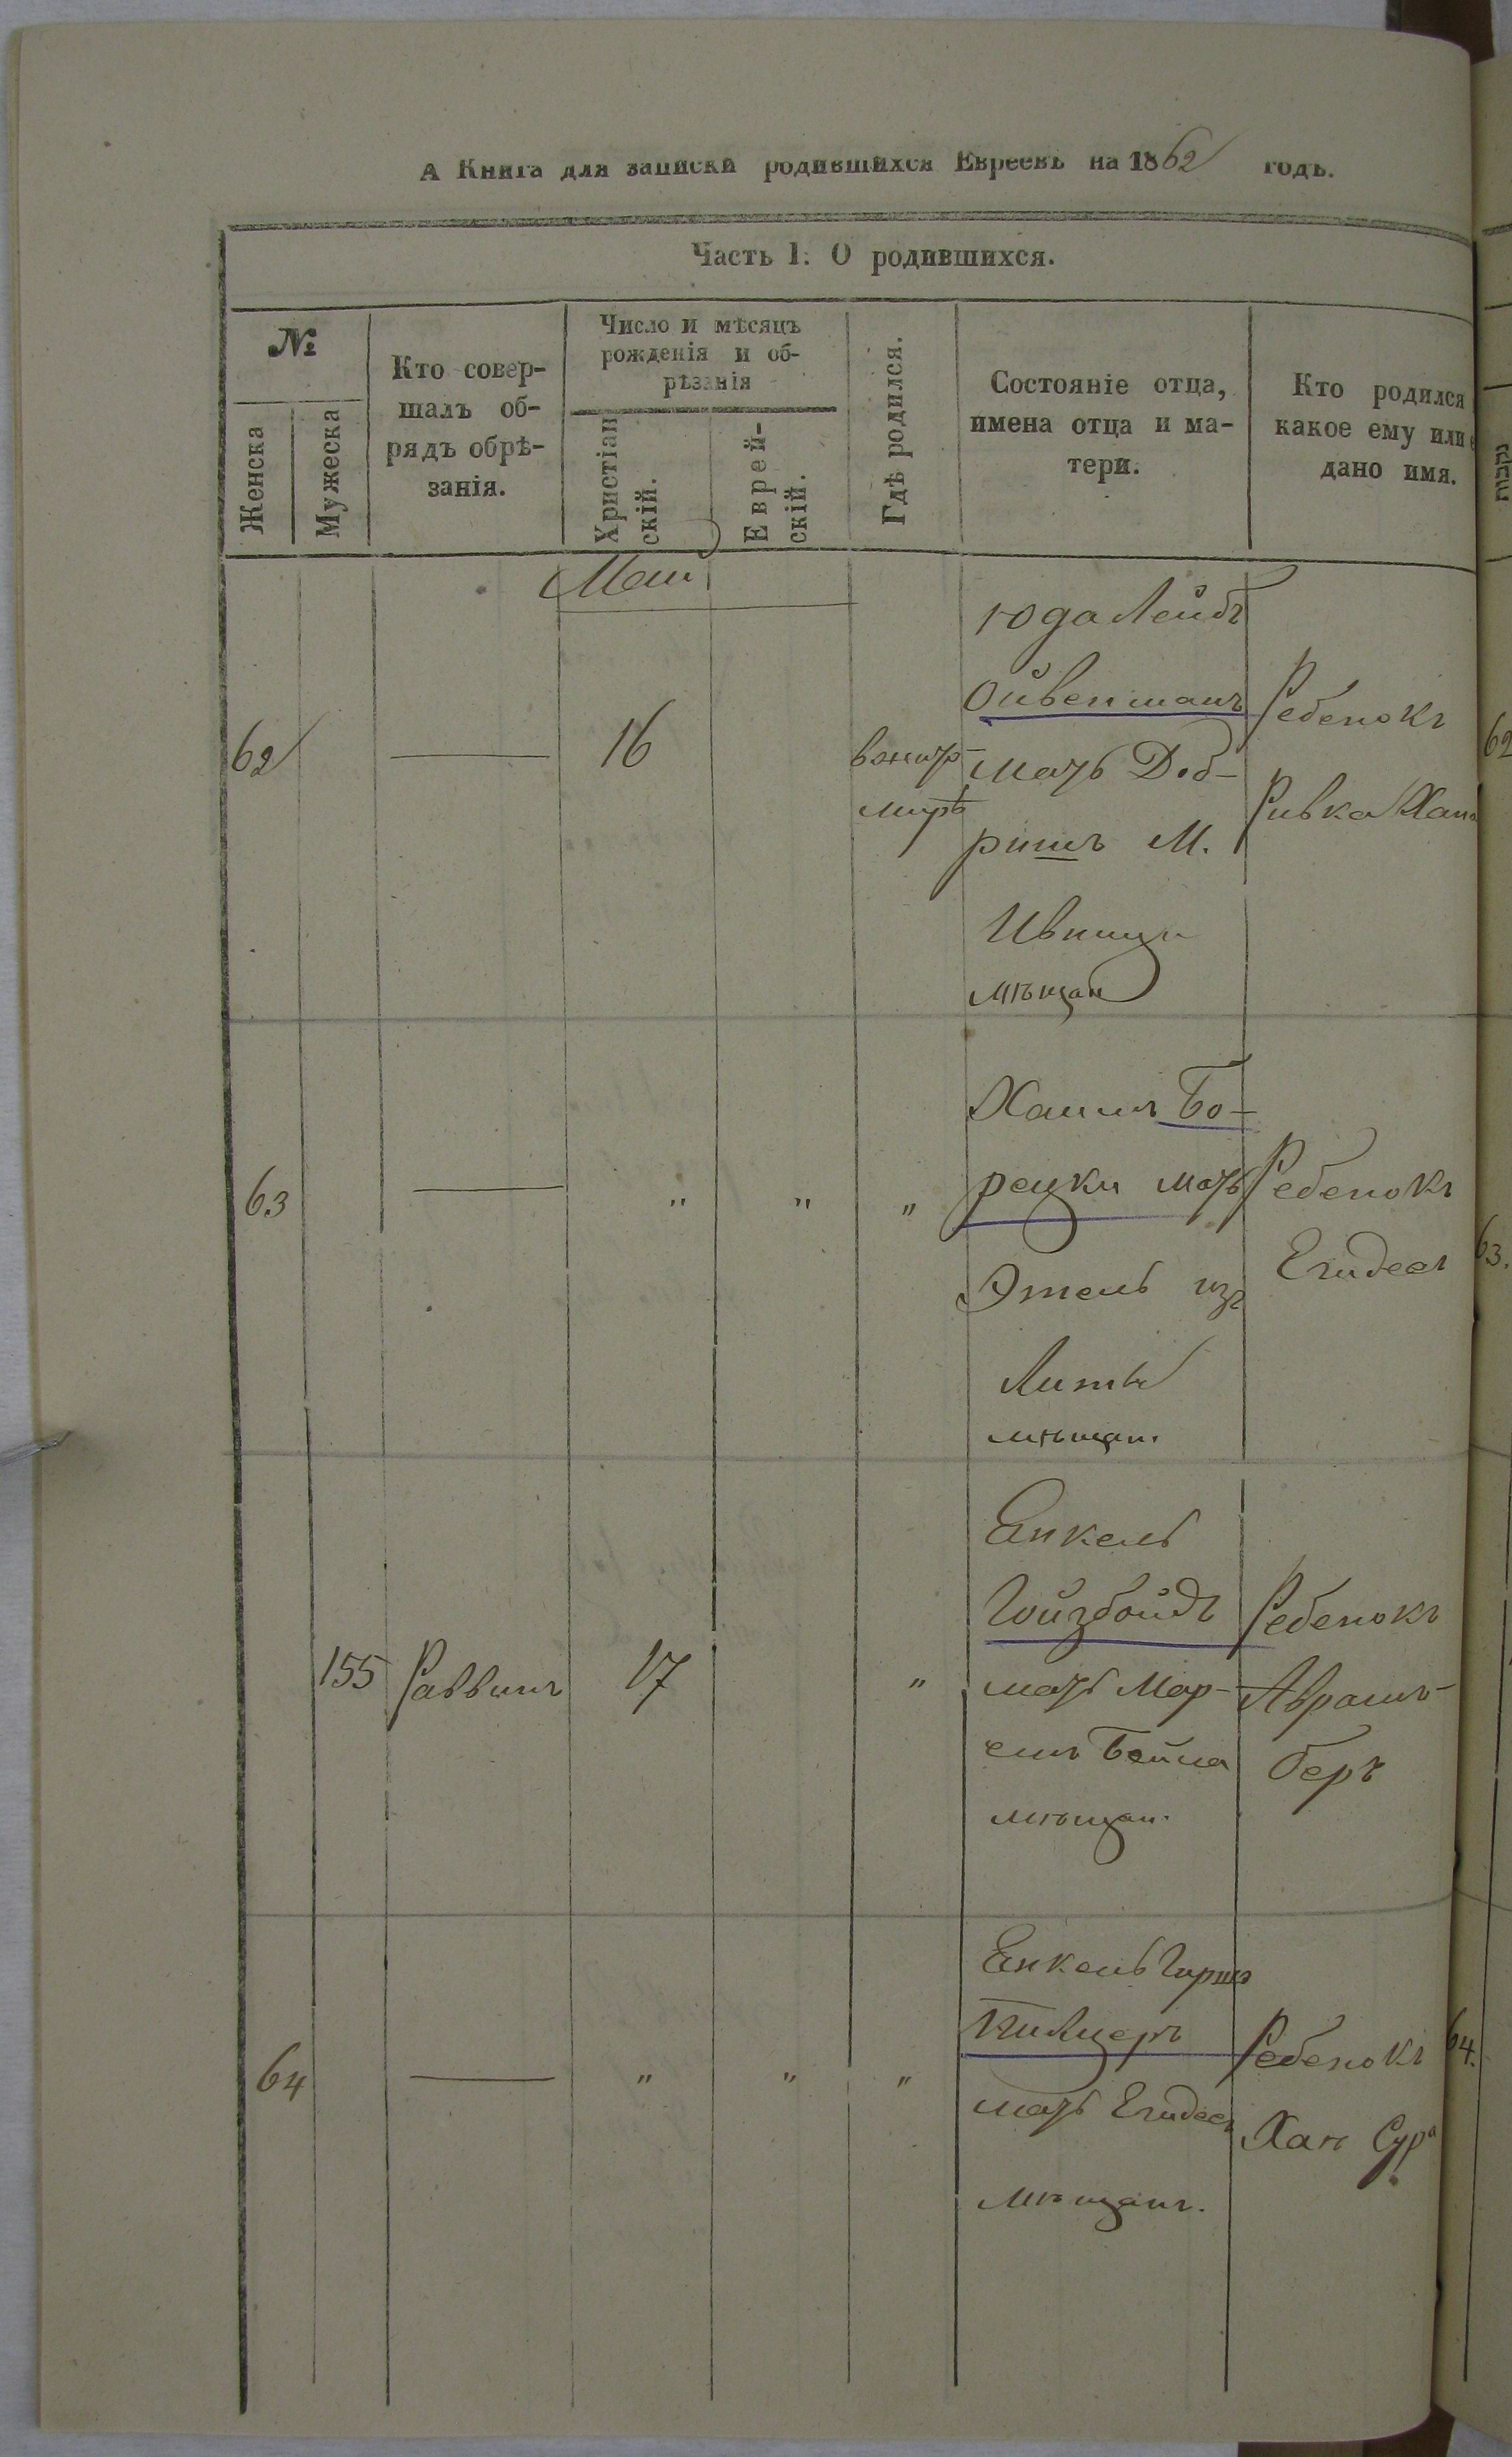 А Книга для записки родившихся Евреевъ на 1862 годъ.
Часть 1. О родившихся.
№
Женска
Мужеска
Кто совер-
шалъ об-
рядъ обрѣ-
занія.
Число и мѣсяцъ
рожденія и об-
рѣзанія
Христіан
скій.
Еврей-
скій.
Гдѣ родился.
Состояніе отца,
имена отца и ма-
тери.
Кто родился
какое ему или
дано имя.
Маи
62
16
вжит
мирѣ
Юда Лейбъ
Ойвенманъ
мать Доб-
ришъ М.
мѣщан
Ребенокъ
Ривка Хана
62
63
"
"
"
Хаимъ Бо-
рецки мать
Этель изъ
Литы
мѣщан.
Ребенокъ
Егидесъ
63.
155
Раввинъ
17
"
Енкель
Гойзбойдъ
мать Мар-
емъ Бейла
мѣщан.
Ребенокъ
Аврамъ-
беръ
64
"
"
"
Енкель Гиршъ
Килцеръ
мать Егидесъ
мѣщанъ.
Ребенокъ
Хан Сура
64.